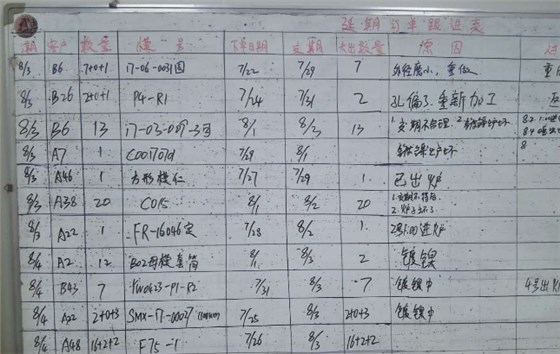 延期订单跟进表
期 客户 数量 模号 下单日期 交期 欠出数量 原因
8/3 B6 7+0+1 17-06-0031图 7/22 7/29 7 外径磨小,重做
8/3 B26 2+0+1 P4-R1 7/24 7/31 2 孔偏了重新加工
8/3 B6 13 17-03-009-3 8/1 8/3 13 1.交期不合理. 2.
8/3 A7 1 C0017 7/29 8/1
8/3 A46 1 方形模仁 7/27 7/29 1. 已出炉
8/3 A38 20 C015 8/1 8/2 20 1.交期不符合 2.炉子坏了
8/3 A22 1 FR-16046定 7/28 8/2 1 2号回进炉
8/4 A2 12 B02母模套筒 8/1 8/3 2 镀镍
8/4 B43 7 TW0623-P1-P2 7/31 8/3 7 镀镍中 4号出
8/4 A22 2+0+3 SMX-17-0007 7/25 8/3 2+0+3 镀镍中
8/4 A48 16+2+2 F75-1 7/26 8/3 16+2+2